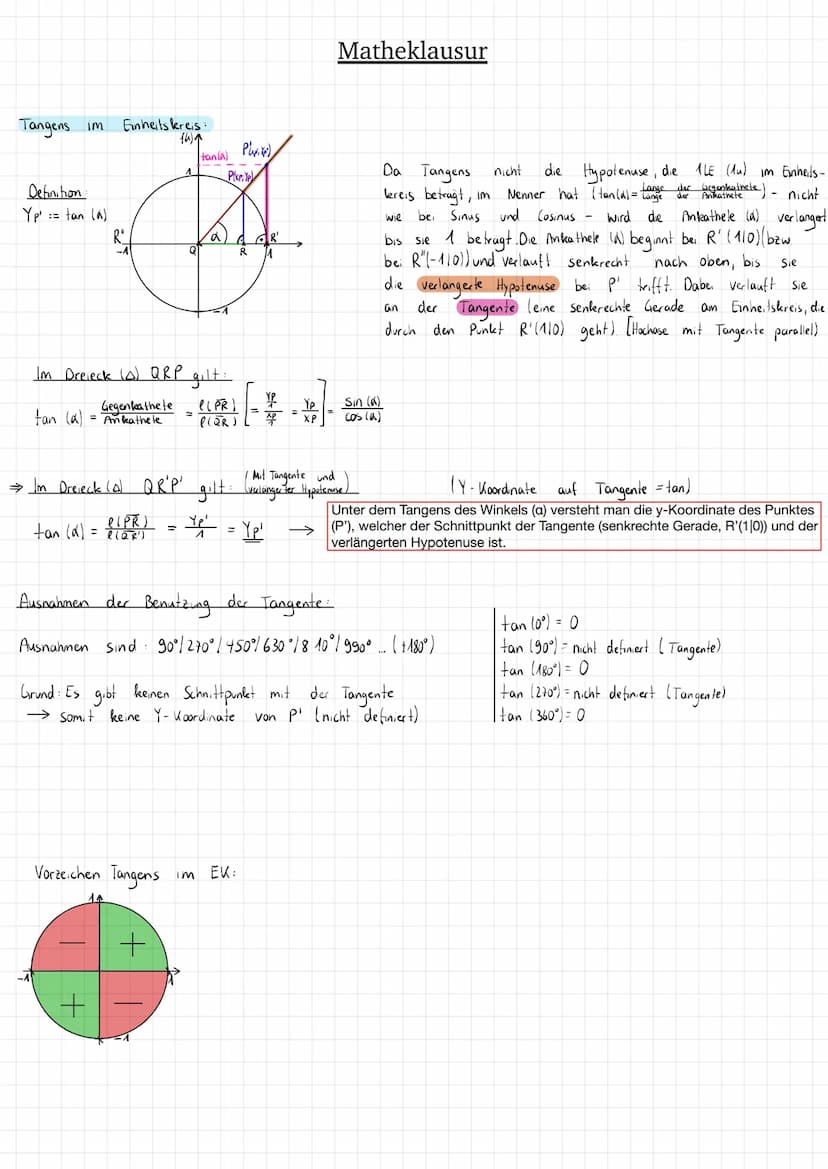 Matheklausur
Tangens im Einheitskreis:
f(α)
tan(α) P'(xp'|yp')
1 P(xp|yp)
Definition:
Yp' := tan (α)
R" α R'
-1 Q R 1
-1
Da Tangens nicht die Hypotenuse, die 1LE (1u) im Einheits-
kreis beträgt, im Nenner hat (tan(α)= Länge der Gegenkathete / Länge der Ankathete) - nicht
wie bei Sinus und Cosinus - wird die Ankathete (α) verlängert
bis sie 1 beträgt. Die Ankathete (α) beginnt bei R' (1|0) (bzw.
bei R"(-1|0)) und verläuft senkrecht nach oben, bis sie
die verlängerte Hypotenuse bei P' trifft. Dabei verläuft sie
an der Tangente (eine senkrechte Gerade am Einheitskreis, die
durch den Punkt R'(1|0) geht) [Hochose mit Tangente parallel)
Im Dreieck (Δ) QRP gilt:
tan (α) = Gegenkathete / Ankathete = l(PR) / l(QR) [= yp/1 / xp/1 = yp / xp] = sin (α) / cos (α)
⇒ Im Dreieck (Δ) QR'P' gilt: (Mit Tangente und verlängerter Hypotenuse)
(Y-Koordinate auf Tangente = tan)
tan (α) = l(PR) / l(QR') = Yp' / 1 = Yp' →
Unter dem Tangens des Winkels (α) versteht man die y-Koordinate des Punktes
(P'), welcher der Schnittpunkt der Tangente (senkrechte Gerade, R'(1|0)) und der
verlängerten Hypotenuse ist.
Ausnahmen der Benutzung der Tangente:
Ausnahmen sind: 90°/270°/450°/630°/810°/990° ... (+180°)
Grund: Es gibt keinen Schnittpunkt mit der Tangente
→ somit keine Y-Koordinate von P' (nicht definiert)
tan (0°) = 0
tan (90°) = nicht definiert (Tangente)
tan (180°) = 0
tan (270°) = nicht definiert (Tangente)
tan (360°) = 0
Vorzeichen Tangens im EK:
1
− +
-1 1
+ −
-1